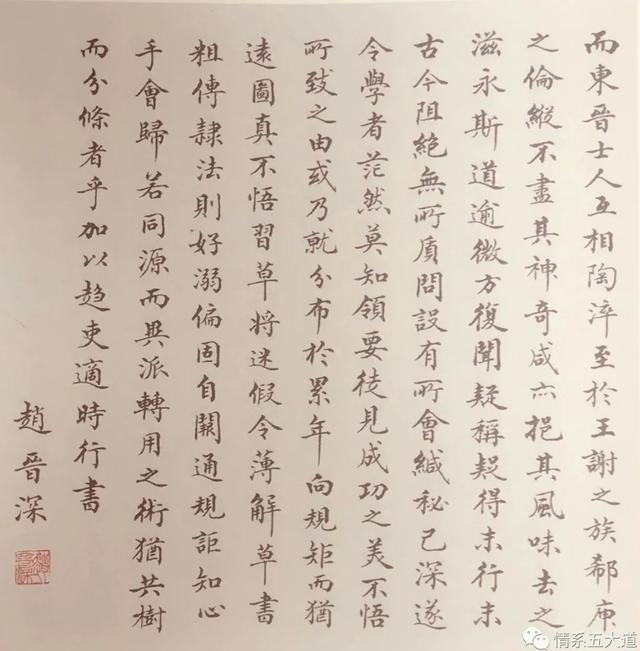 而東晉士人互相陶淬至於王謝之族郗庾
之倫縱不盡其神奇咸亦挹其風味去之
滋永斯道逾微方復聞疑稱疑得末行末
古今阻絕無所質問設有所會緘秘已深遂
令學者茫然莫知領要徒見成功之美不悟
所致之由或乃就分布於累年向規矩而猶
遠圖真不悟習草將迷假令薄解草書
粗傳隸法則好溺偏固自闗通規詎知心
手會歸若同源而異派轉用之術猶共樹
而分條者乎加以趨吏適時行書
趙晉深
情系五大道